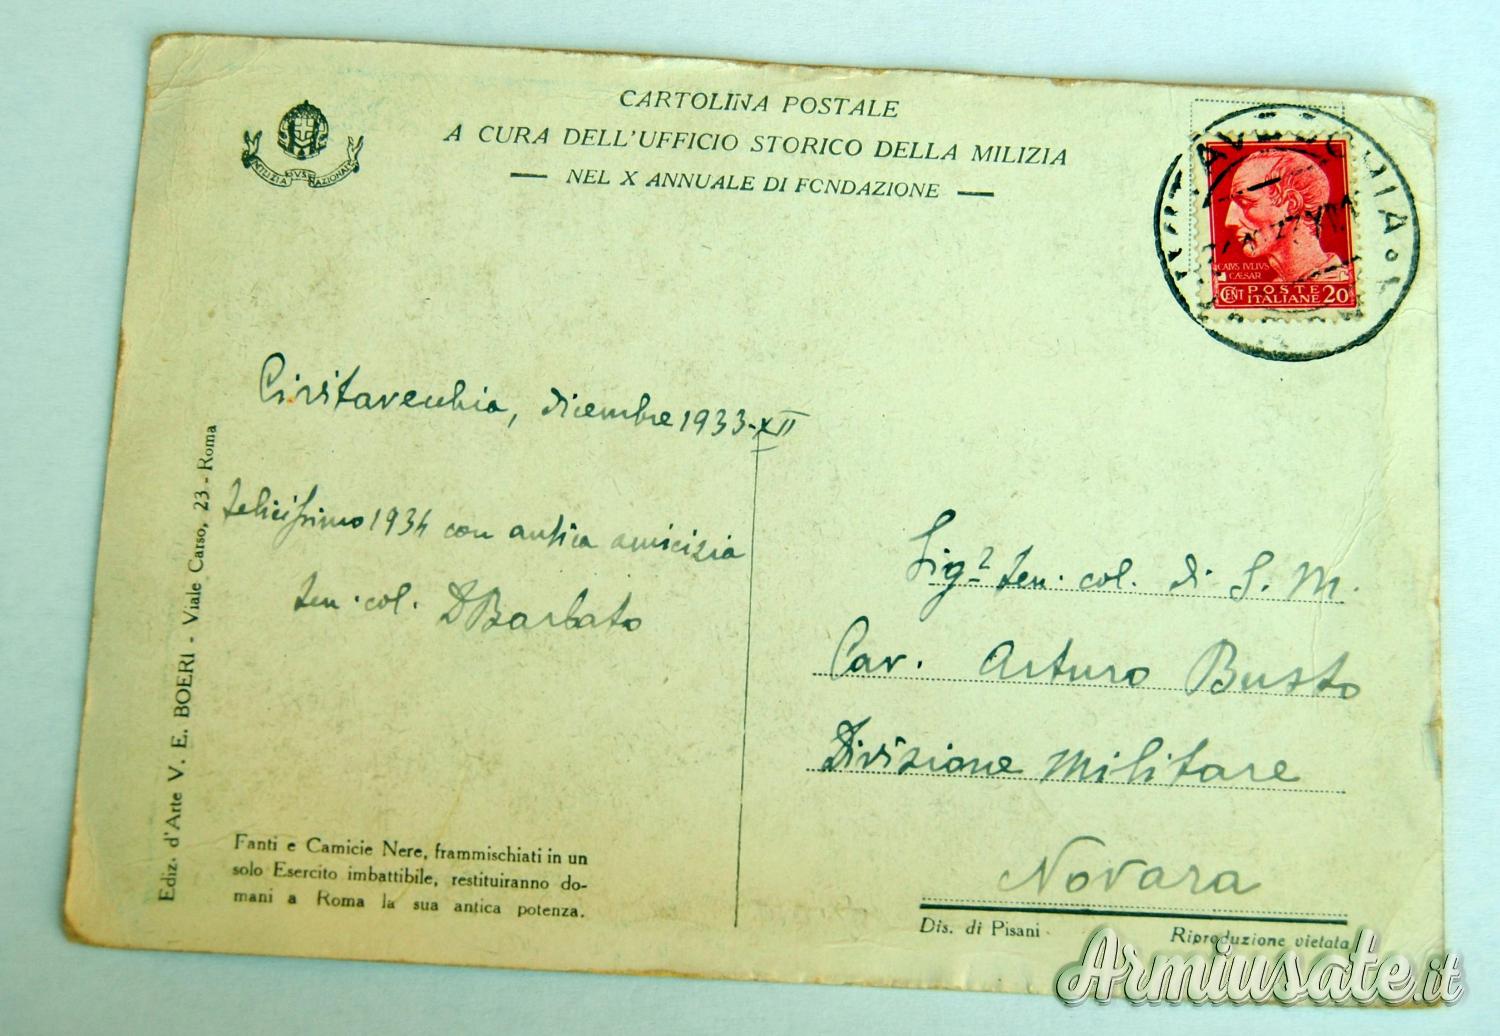 CARTOLINA POSTALE
A CURA DELL'UFFICIO STORICO DELLA MILIZIA
— NEL X ANNUALE DI FONDAZIONE —
MILIZIA NAZIONALE
CAIVS IVLIVS
CÆSAR
CENT POSTE ITALIANE 20
Civitavecchia, dicembre 1933-XII
felicissimo 1934 con antica amicizia
ten. col. DBarbato
Sigr ten. col. di S. M.
Cav. Arturo Busto
Divisione Militare
Novara
Ediz. d'Arte V. E. BOERI - Viale Carso, 23 - Roma
Fanti e Camicie Nere, frammischiati in un
solo Esercito imbattibile, restituiranno do-
mani a Roma la sua antica potenza.
Dis. di Pisani
Riproduzione vietata
Armiusate.it